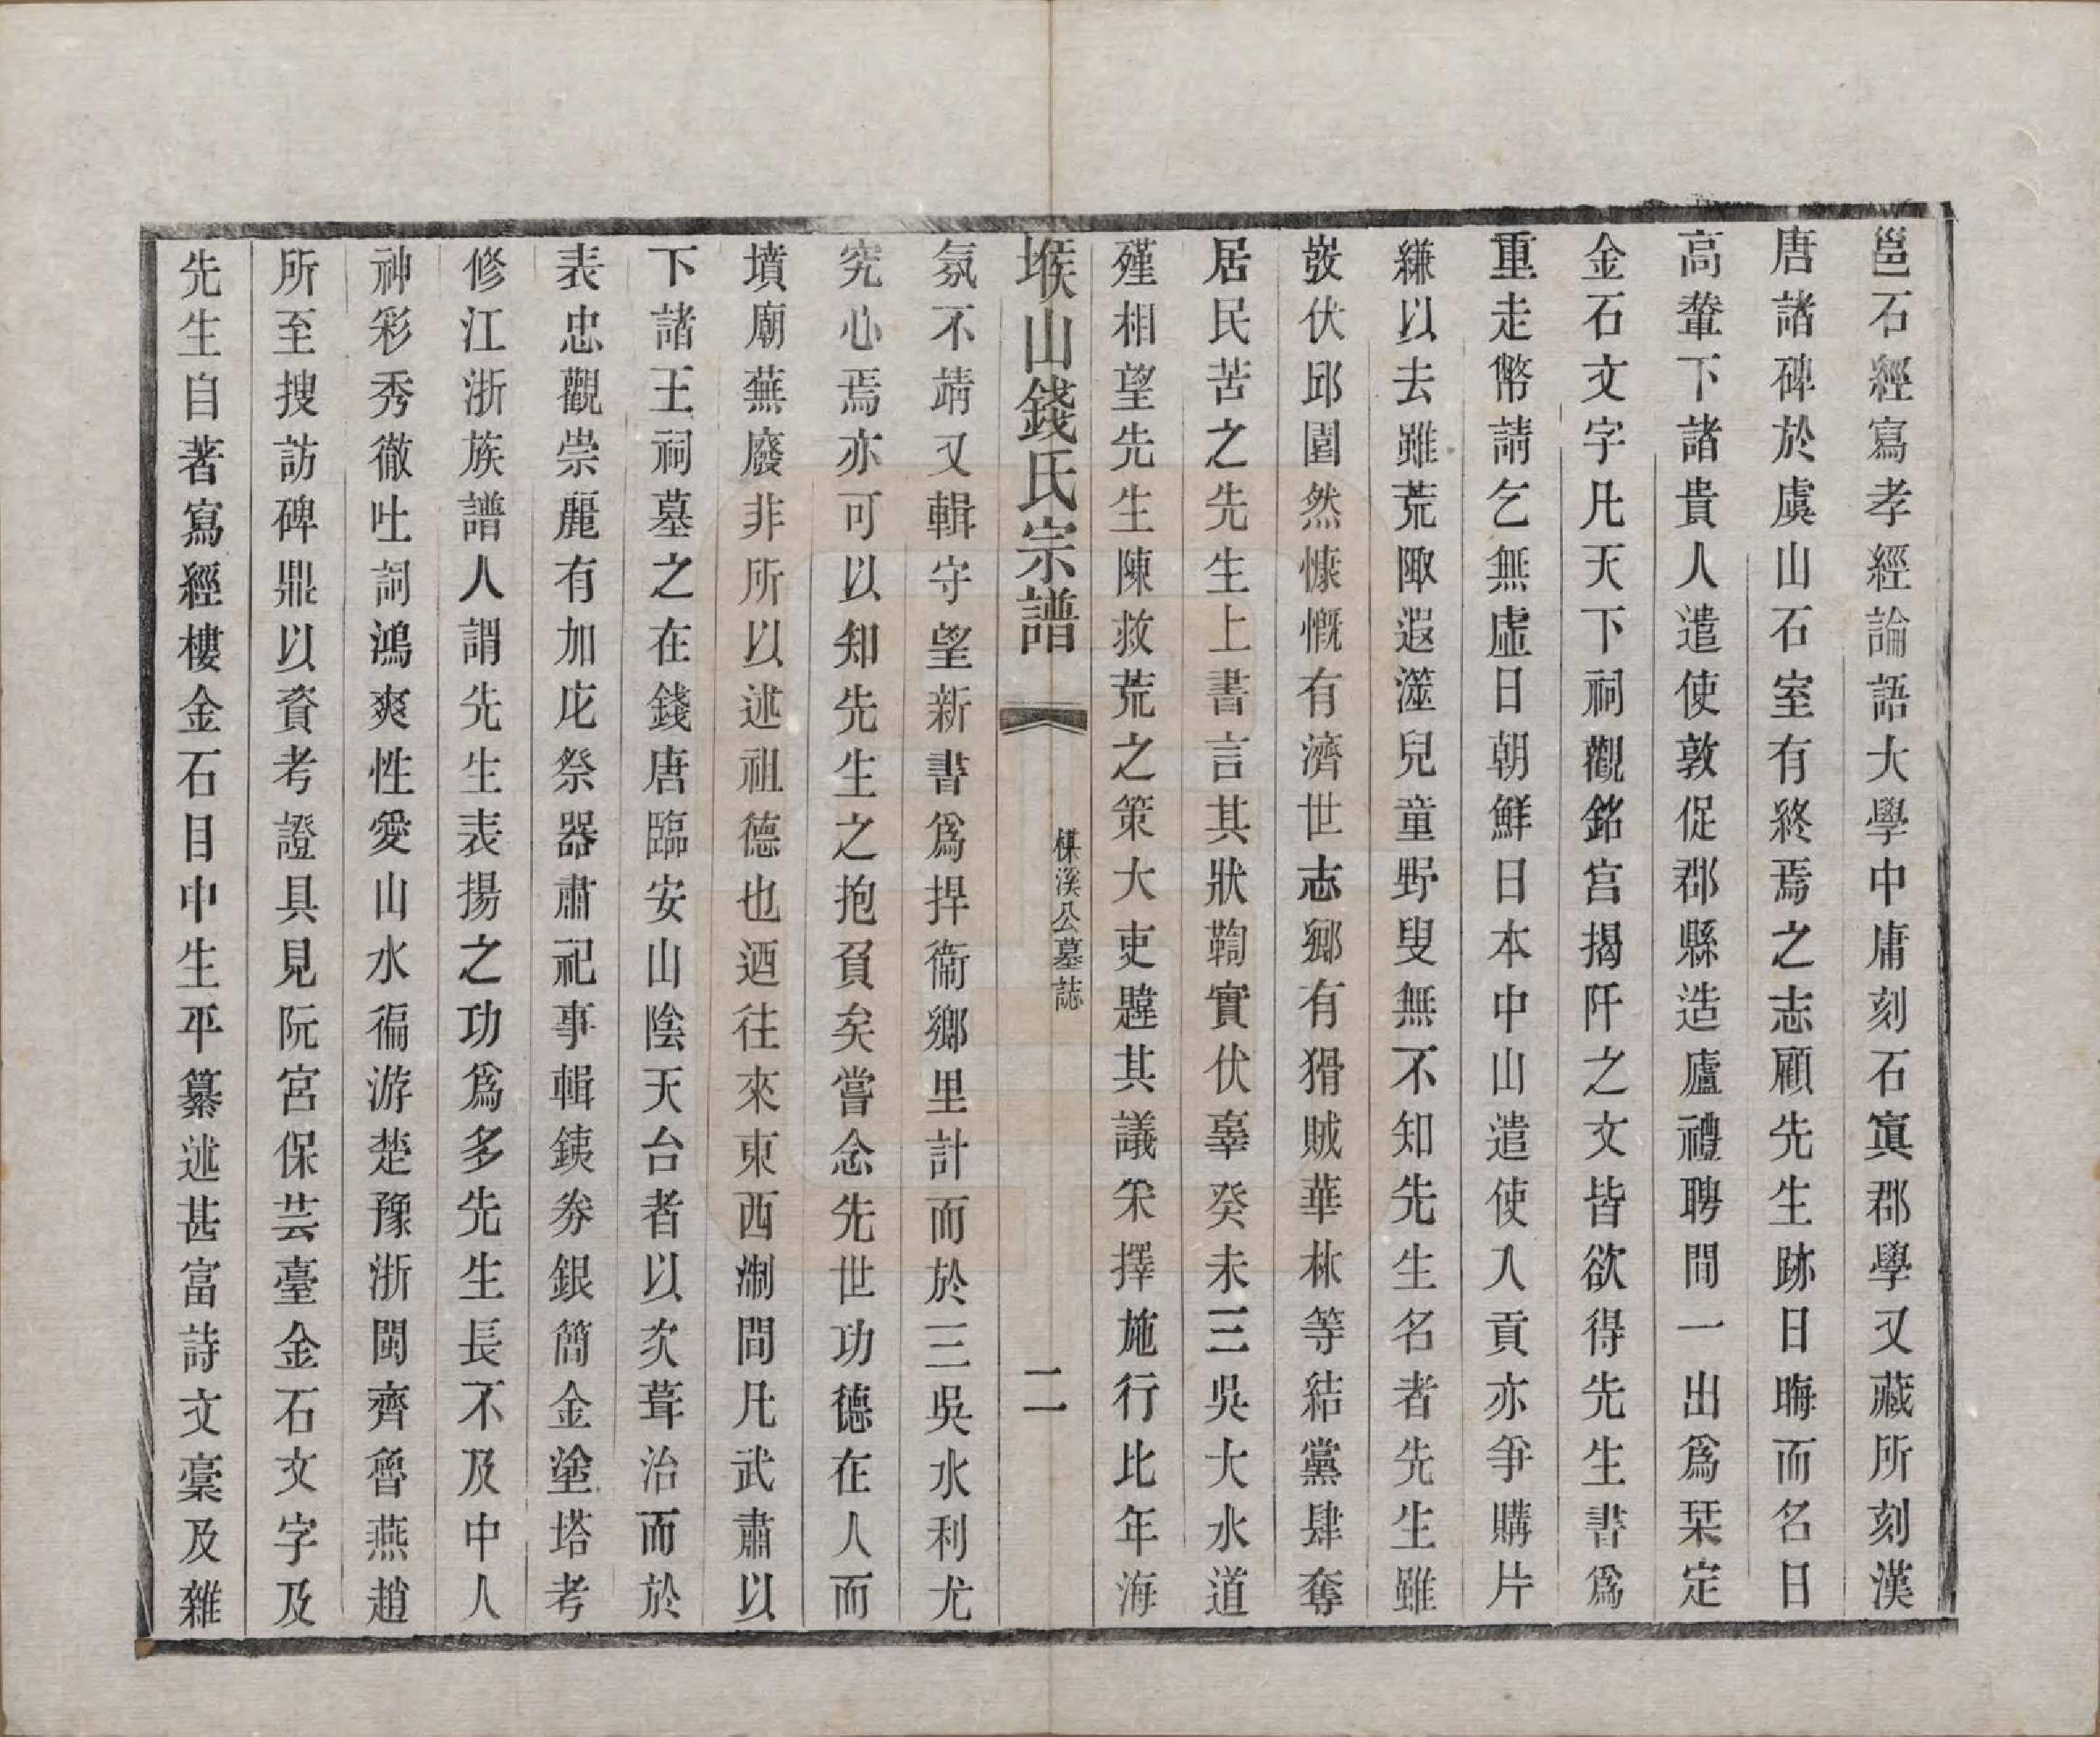 邕石經寫孝經論語大學中庸刻石寘郡學又藏所刻漢
唐諸碑於虞山石室有終焉之志顧先生跡日晦而名日
高輦下諸貴人遣使敦促郡縣造廬禮聘間一出爲栞定
金石文字凡天下祠觀銘宫揭阡之文皆欲得先生書爲
重走幣請乞無虛日朝鮮日本中山遣使入貢亦爭購片
縑以去雖荒陬遐澨兒童野叟無不知先生名者先生雖
敳伏邱園然慷慨有濟世志鄉有猾賊華林等結黨肆奪
居民苦之先生上書言其狀鞫實伏辜癸未三吳大水道
殣相望先生陳救荒之策大吏韙其議采擇施行比年海
堠山錢氏宗譜
楳溪公墓誌
二
氛不靖又輯守望新書爲捍衞鄉里計而於三吳水利尤
究心焉亦可以知先生之抱負矣嘗念先世功德在人而
墳廟蕪廢非所以述祖德也迺往來東西淛間凡武肅以
下諸王祠墓之在錢唐臨安山陰天台者以次葺治而於
表忠觀崇麗有加庀祭器肅祀事輯銕券銀簡金塗塔考
修江浙族譜人謂先生表揚之功爲多先生長不及中人
神彩秀徹吐詞鴻爽性愛山水徧游楚豫浙閩齊魯燕趙
所至搜訪碑鼎以資考證具見阮宮保芸臺金石文字及
先生自著寫經樓金石目中生平纂述甚富詩文稾及雜